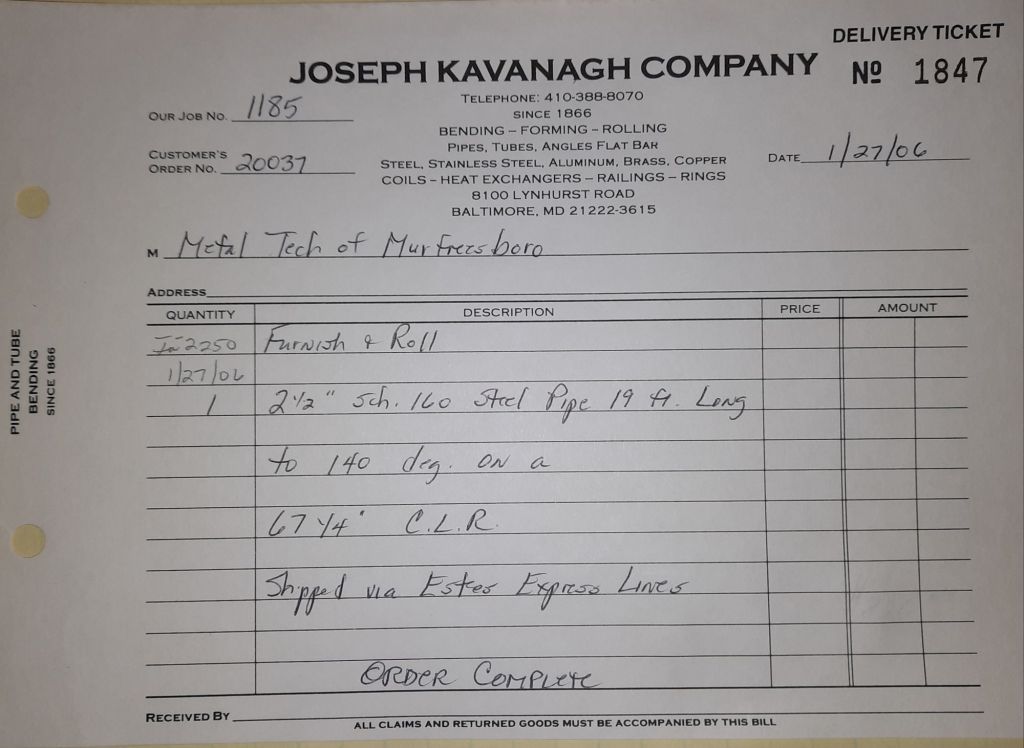 DELIVERY TICKET
JOSEPH KAVANAGH COMPANY
Nº 1847
TELEPHONE: 410-388-8070
SINCE 1866
BENDING – FORMING – ROLLING
PIPES, TUBES, ANGLES FLAT BAR
STEEL, STAINLESS STEEL, ALUMINUM, BRASS, COPPER
COILS – HEAT EXCHANGERS – RAILINGS – RINGS
8100 LYNHURST ROAD
BALTIMORE, MD 21222-3615
OUR JOB NO. 1185
CUSTOMER'S
ORDER NO. 20037
DATE 1/27/06
M Metal Tech of Murfreesboro
ADDRESS
QUANTITY DESCRIPTION PRICE AMOUNT
2250 Furnish & Roll
1/27/06
1 2 1/2" Sch. 160 Steel Pipe 19 ft. Long
to 140 deg. on a
67 1/4" C.L.R.
Shipped via Estes Express Lines
ORDER COMPLETE
RECEIVED BY
ALL CLAIMS AND RETURNED GOODS MUST BE ACCOMPANIED BY THIS BILL
PIPE AND TUBE
BENDING
SINCE 1866